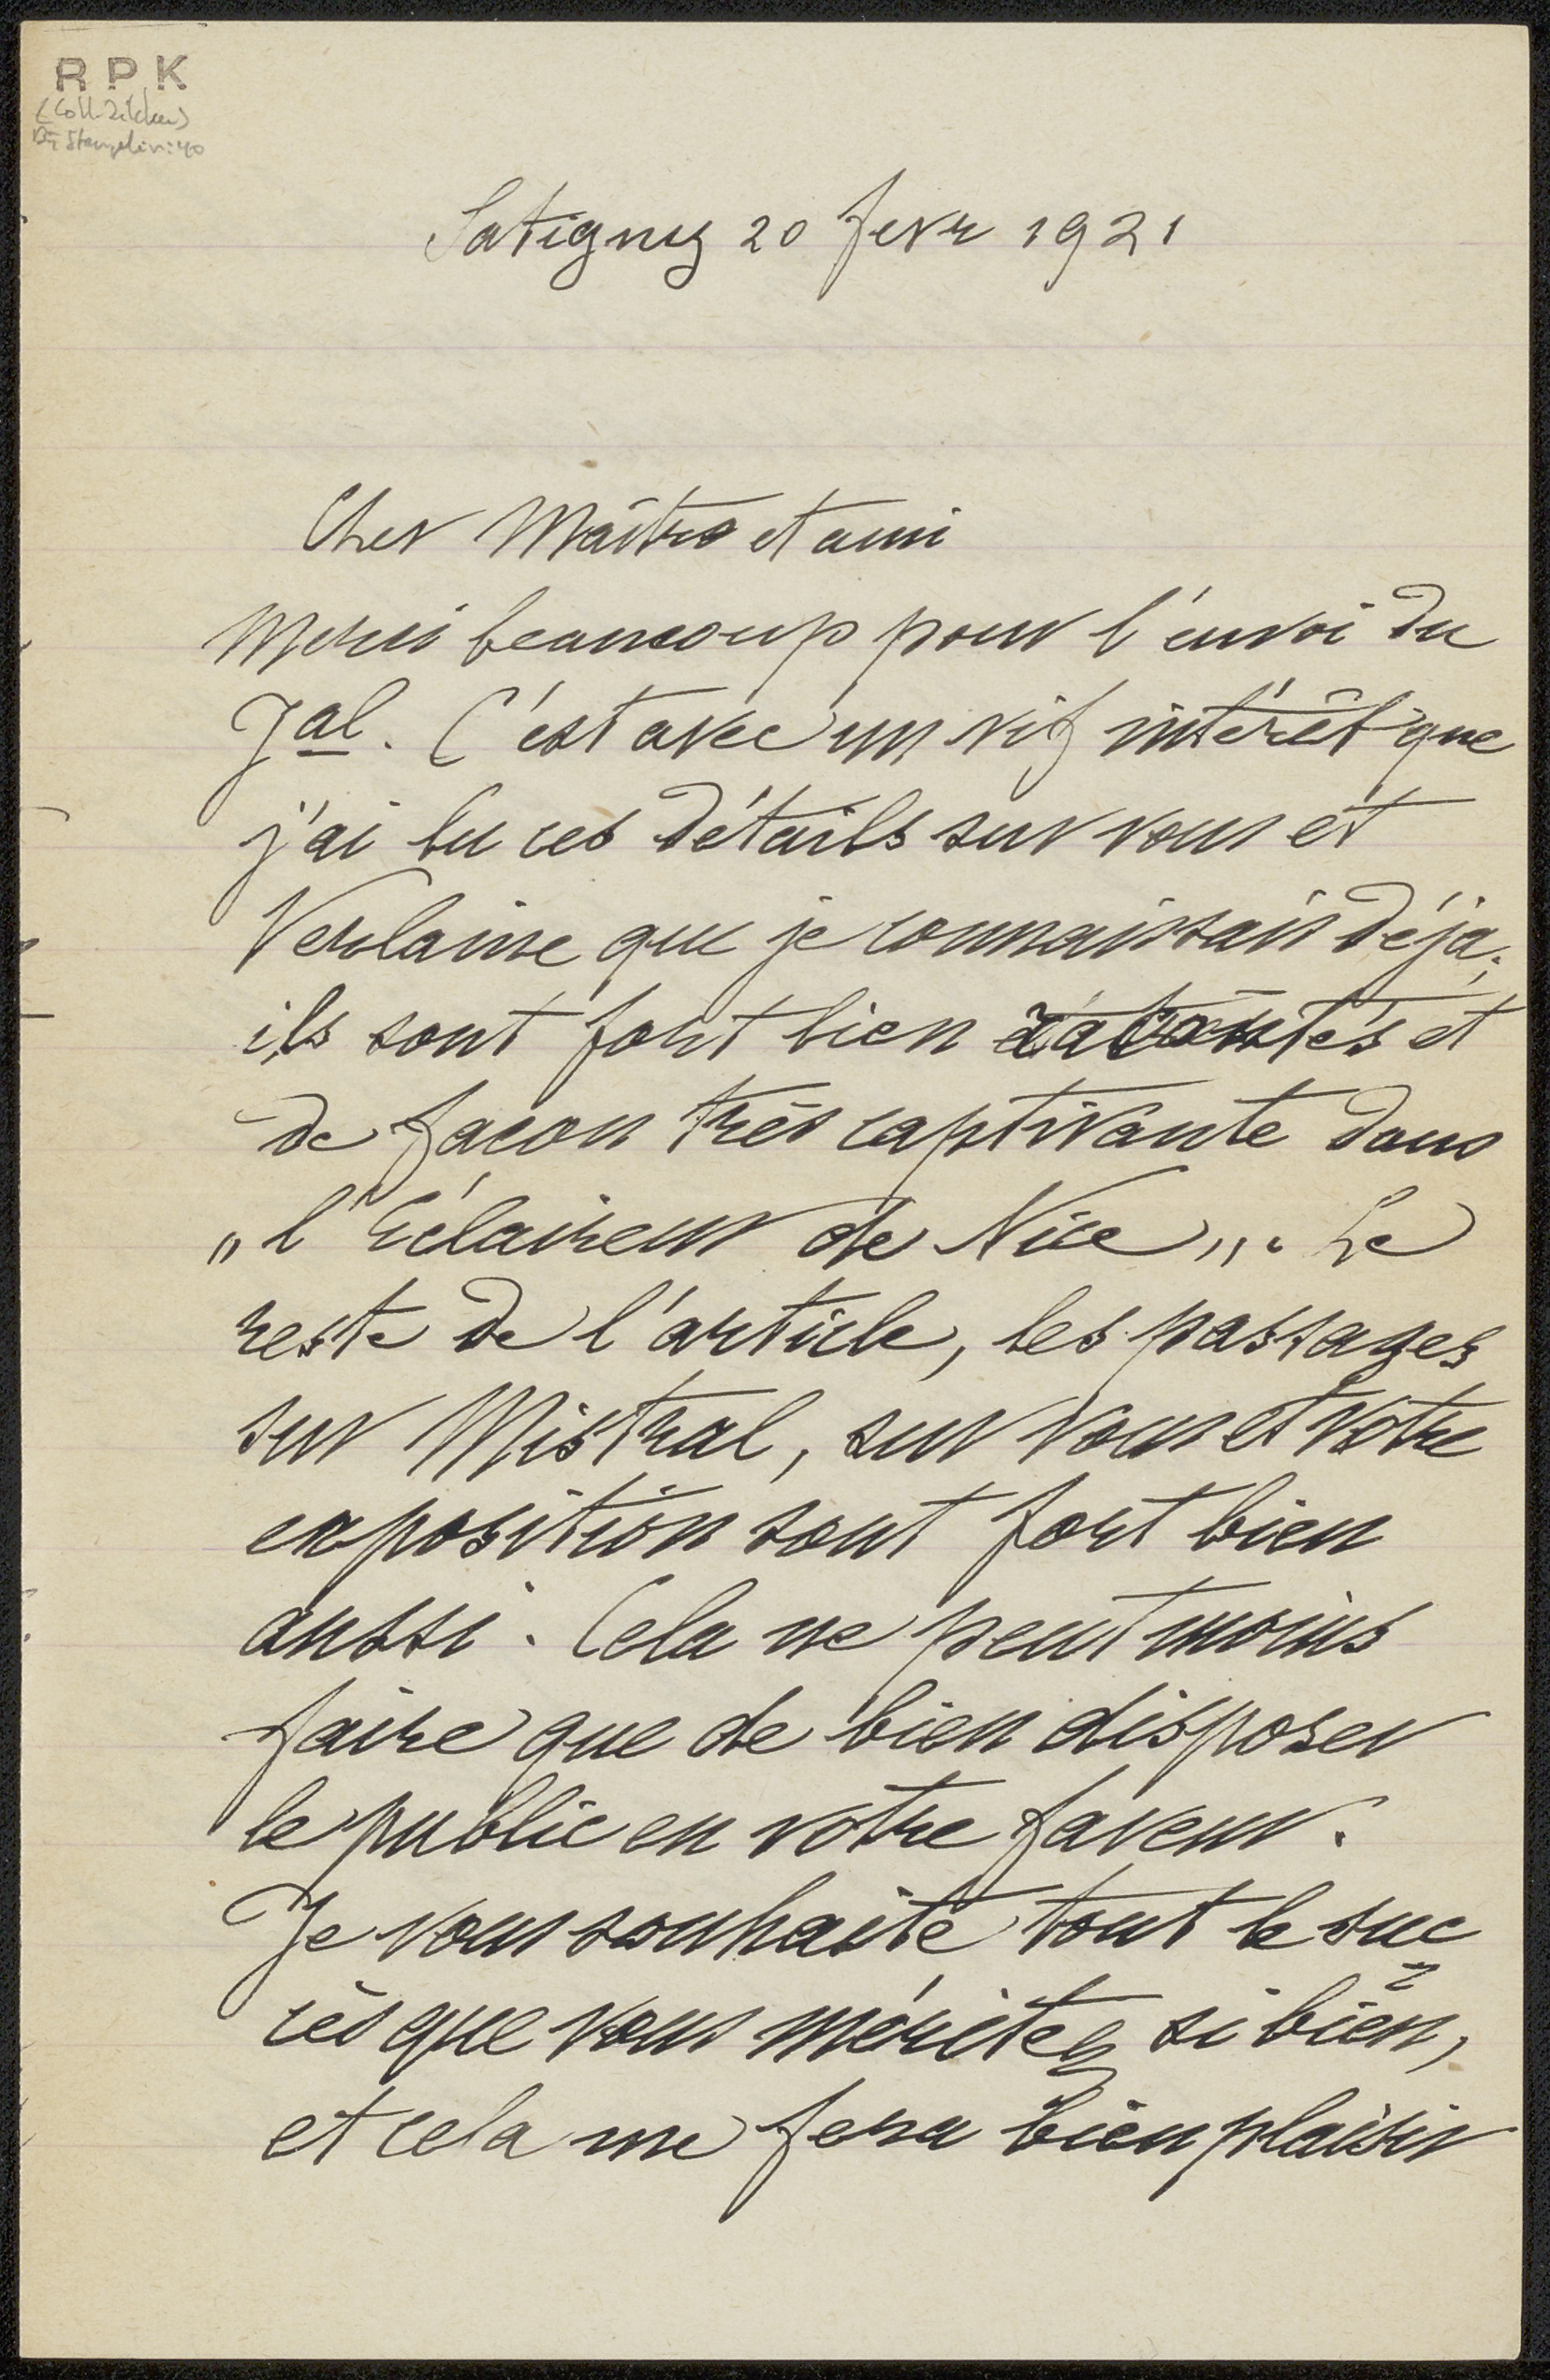 RPK
(Coll. Zilcken)
Satigny 20 fevr 1921
Cher Maître et ami
Merci beaucoup pour l'envoi du
Jal. C'est avec un vif intérêt que
j'ai lu ces détails sur vous et
Verlaine que je connaissais déjà;
ils sont fort bien racontés et
de façon très captivante dans
„l'Eclaireur de Nice„. Le
reste de l'article, les passages
sur Mistral, sur vous et votre
exposition sont fort bien
aussi. Cela ne peut moins
faire que de bien disposer
le public en votre faveur.
Je vous souhaite tout le suc=
cès que vous méritez si bien,
et cela me fera bien plaisir